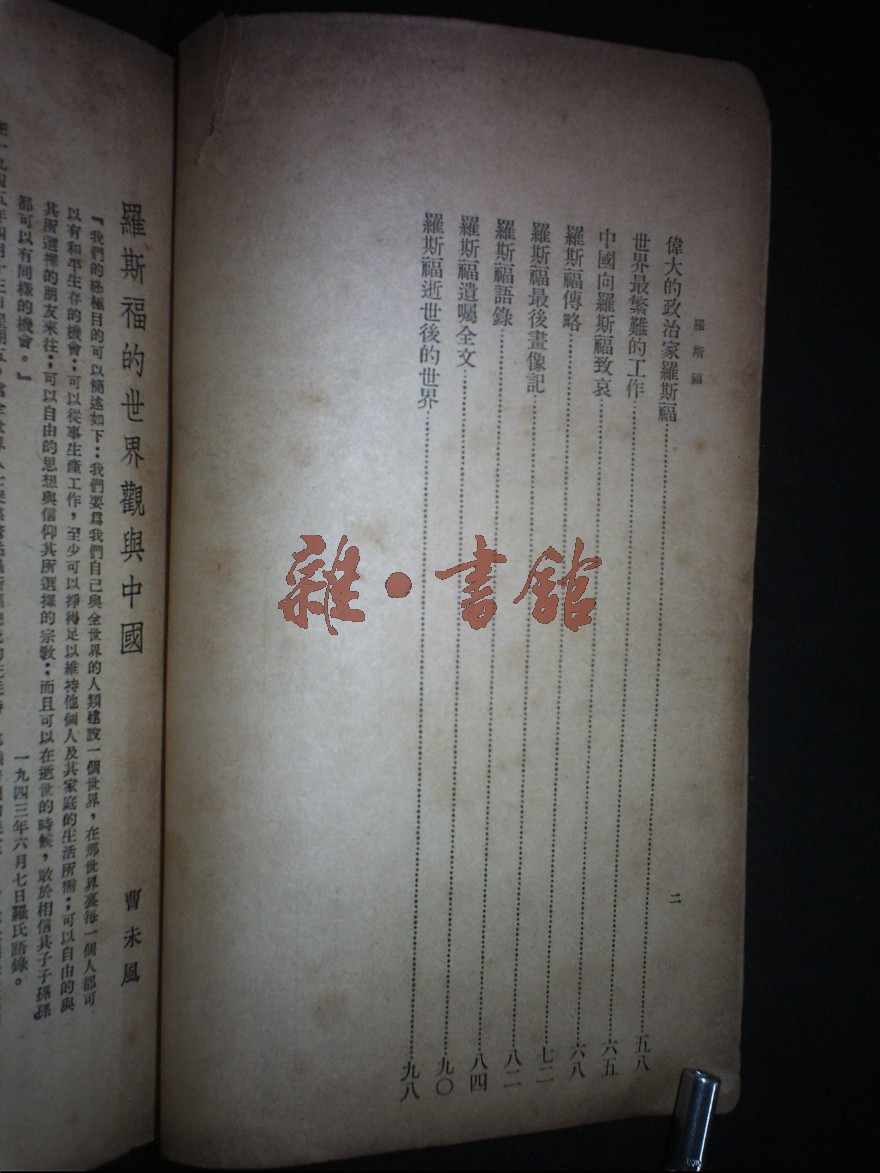 羅斯福
二
偉大的政治家羅斯福……五八
世界最繁難的工作……六五
中國向羅斯福致哀……六八
羅斯福傳略……七二
羅斯福最後畫像記……八二
羅斯福語錄……八四
羅斯福遺囑全文……九〇
羅斯福逝世後的世界……九八
雜·書館
羅斯福的世界觀與中國
曹未風
『我們的終極目的可以簡述如下：我們要爲我們自己與全世界的人類建設一個世界，在那世界裏每一個人都可
以有和平生存的機會；可以從事生產工作，至少可以掙得足以維持他個人及其家庭的生活所需；可以自由的與
其所選擇的朋友來往；可以自由的思想與信仰其所選擇的宗敎；而且可以在逝世的時候，敢於相信其子子孫孫
都可以有同樣的機會。』
一九四三年六月七日羅氏語錄。
在一九四五年四月十三日星期五，